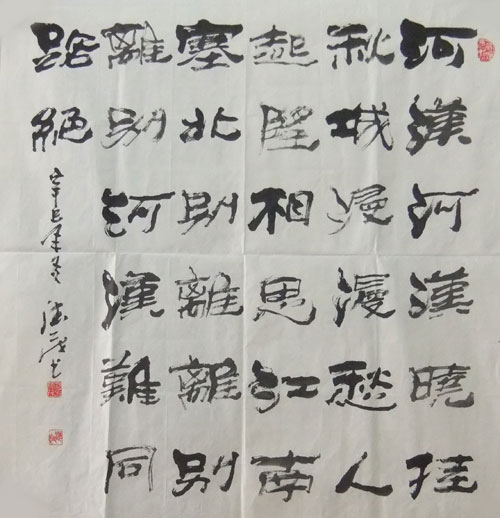 河漢河漢曉挂
秋城漫漫愁人
起望相思江南
塞北別離離別
離別河漢雖同
路絕